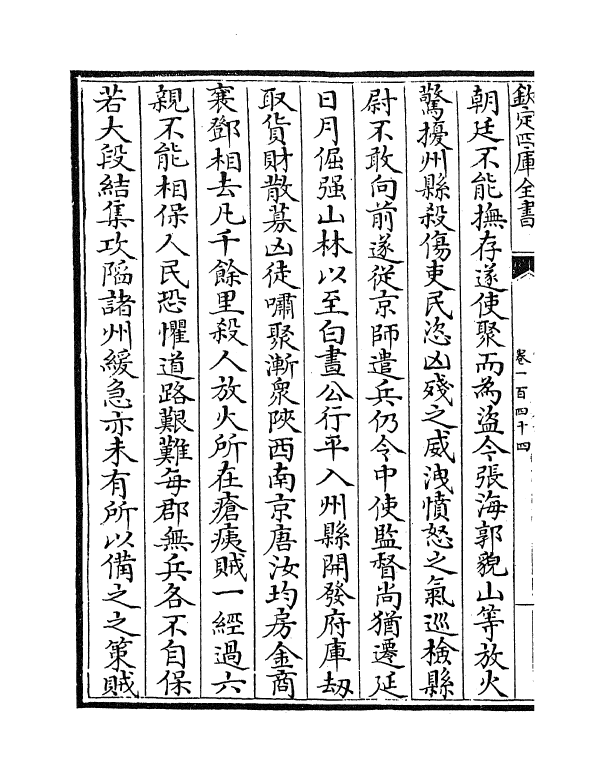 欽定四庫全書
卷一百四十四
朝廷不能撫存遂使聚而為盜今張海郭貌山等放火
驚擾州縣殺傷吏民恣凶殘之威洩憤怒之氣巡檢縣
尉不敢向前遂從京師遣兵仍令中使監督尚猶遷延
日月倔强山林以至白晝公行平入州縣開發府庫刼
取貨財散募凶徒嘯聚漸衆陜西南京唐汝均房金商
襄鄧相去凡千餘里殺人放火所在瘡痍賊一經過六
親不能相保人民恐懼道路艱難每郡無兵各不自保
若大段結集攻䧟諸州緩急亦未有所以備之之策賊